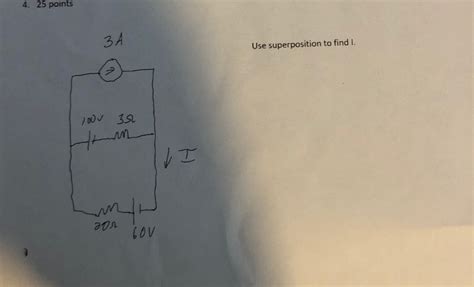 4. 25 points
3A
Use superposition to find I.
100V 3Ω
↓ I
20Ω
60V